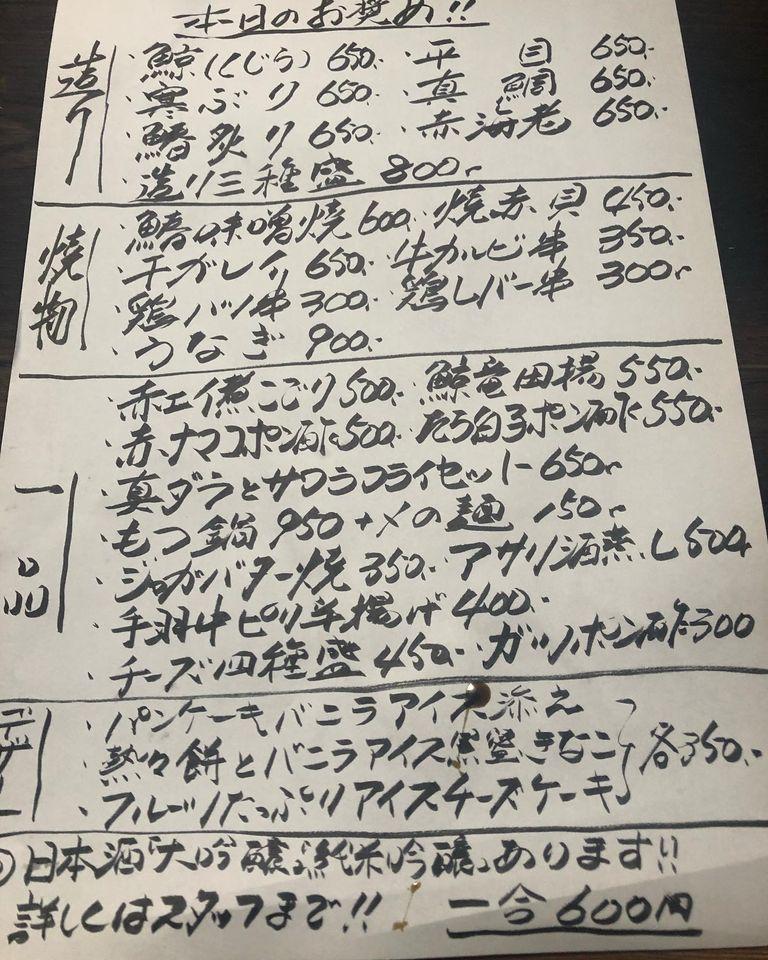 本日のお奨め!!
造り
・鯨(くじら) 650.- ・平目 650.-
・寒ぶり 650.- ・真鯛 650.-
・鰆炙り 650.- ・赤海老 650.-
・造り三種盛 800.-
焼物
・鰆味噌焼 600.- ・焼赤貝 450.-
・干ガレイ 650.- ・牛カルビ串 350.-
・鶏ハツ串 300.- ・鶏レバー串 300.-
・うなぎ 900.-
一品
・赤エイ煮こごり 500.- ・鯨竜田揚 550.-
・赤ナマコポン酢 500.- ・たら白子ポン酢 550.-
・真ダラとサワラフライセット 650.-
・もつ鍋 950 +〆の麺 150.-
・ジャガバター焼 350.- ・アサリ酒蒸し 500
・手羽中ピリ辛揚げ 400.-
・チーズ四種盛 450.- ・ガツポン酢 300
デザート
・パンケーキバニラアイス添え
・熱々餅とバニラアイス黒蜜きなこ 各350.-
・フルーツたっぷりアイスチーズケーキ
日本酒「大吟醸」「純米吟醸」あります!!
詳しくはスタッフまで!! 一合600円